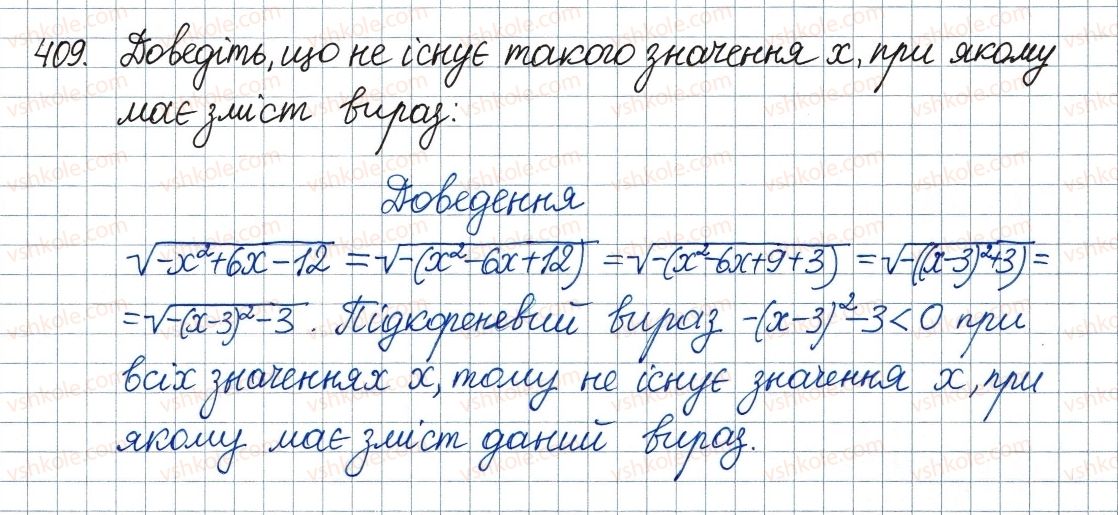 409. Доведіть, що не існує такого значення х, при якому
має зміст вираз:
Доведення
√-x²+6x-12 = √-(x²-6x+12) = √-(x²-6x+9+3) = √-((x-3)²+3) =
= √-(x-3)²-3. Підкореневий вираз -(x-3)²-3<0 при
всіх значеннях х, тому не існує значення х, при
якому має зміст даний вираз.